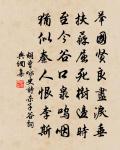 舉國賢良盡淚垂
扶蘇屈死樹邊時
至今谷口泉嗚咽
猶似秦人恨李斯
胡曾詠史詩殺子谷詞